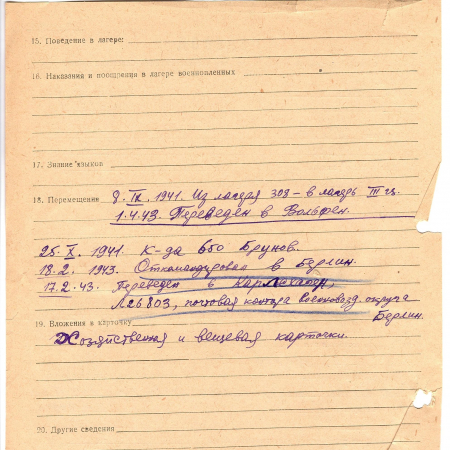 15. Поведение в лагере
16. Наказания и поощрения в лагере военнопленных
17. Знание языков
18. Перемещения 8. IX. 1941. Из лагеря 308 – в лагерь III гц.
1.4.43. Переведен в Вольфен.
25. X. 1941. К-да 650 Брунов.
18.2. 1943. Откомандирован в Берлин.
17.2.43. Переведен в
Л26803, почтовая контора Военновозд. округа
Берлин.
19. Вложения в карточку
Хозяйственная и вещевая карточки.
20. Другие сведения